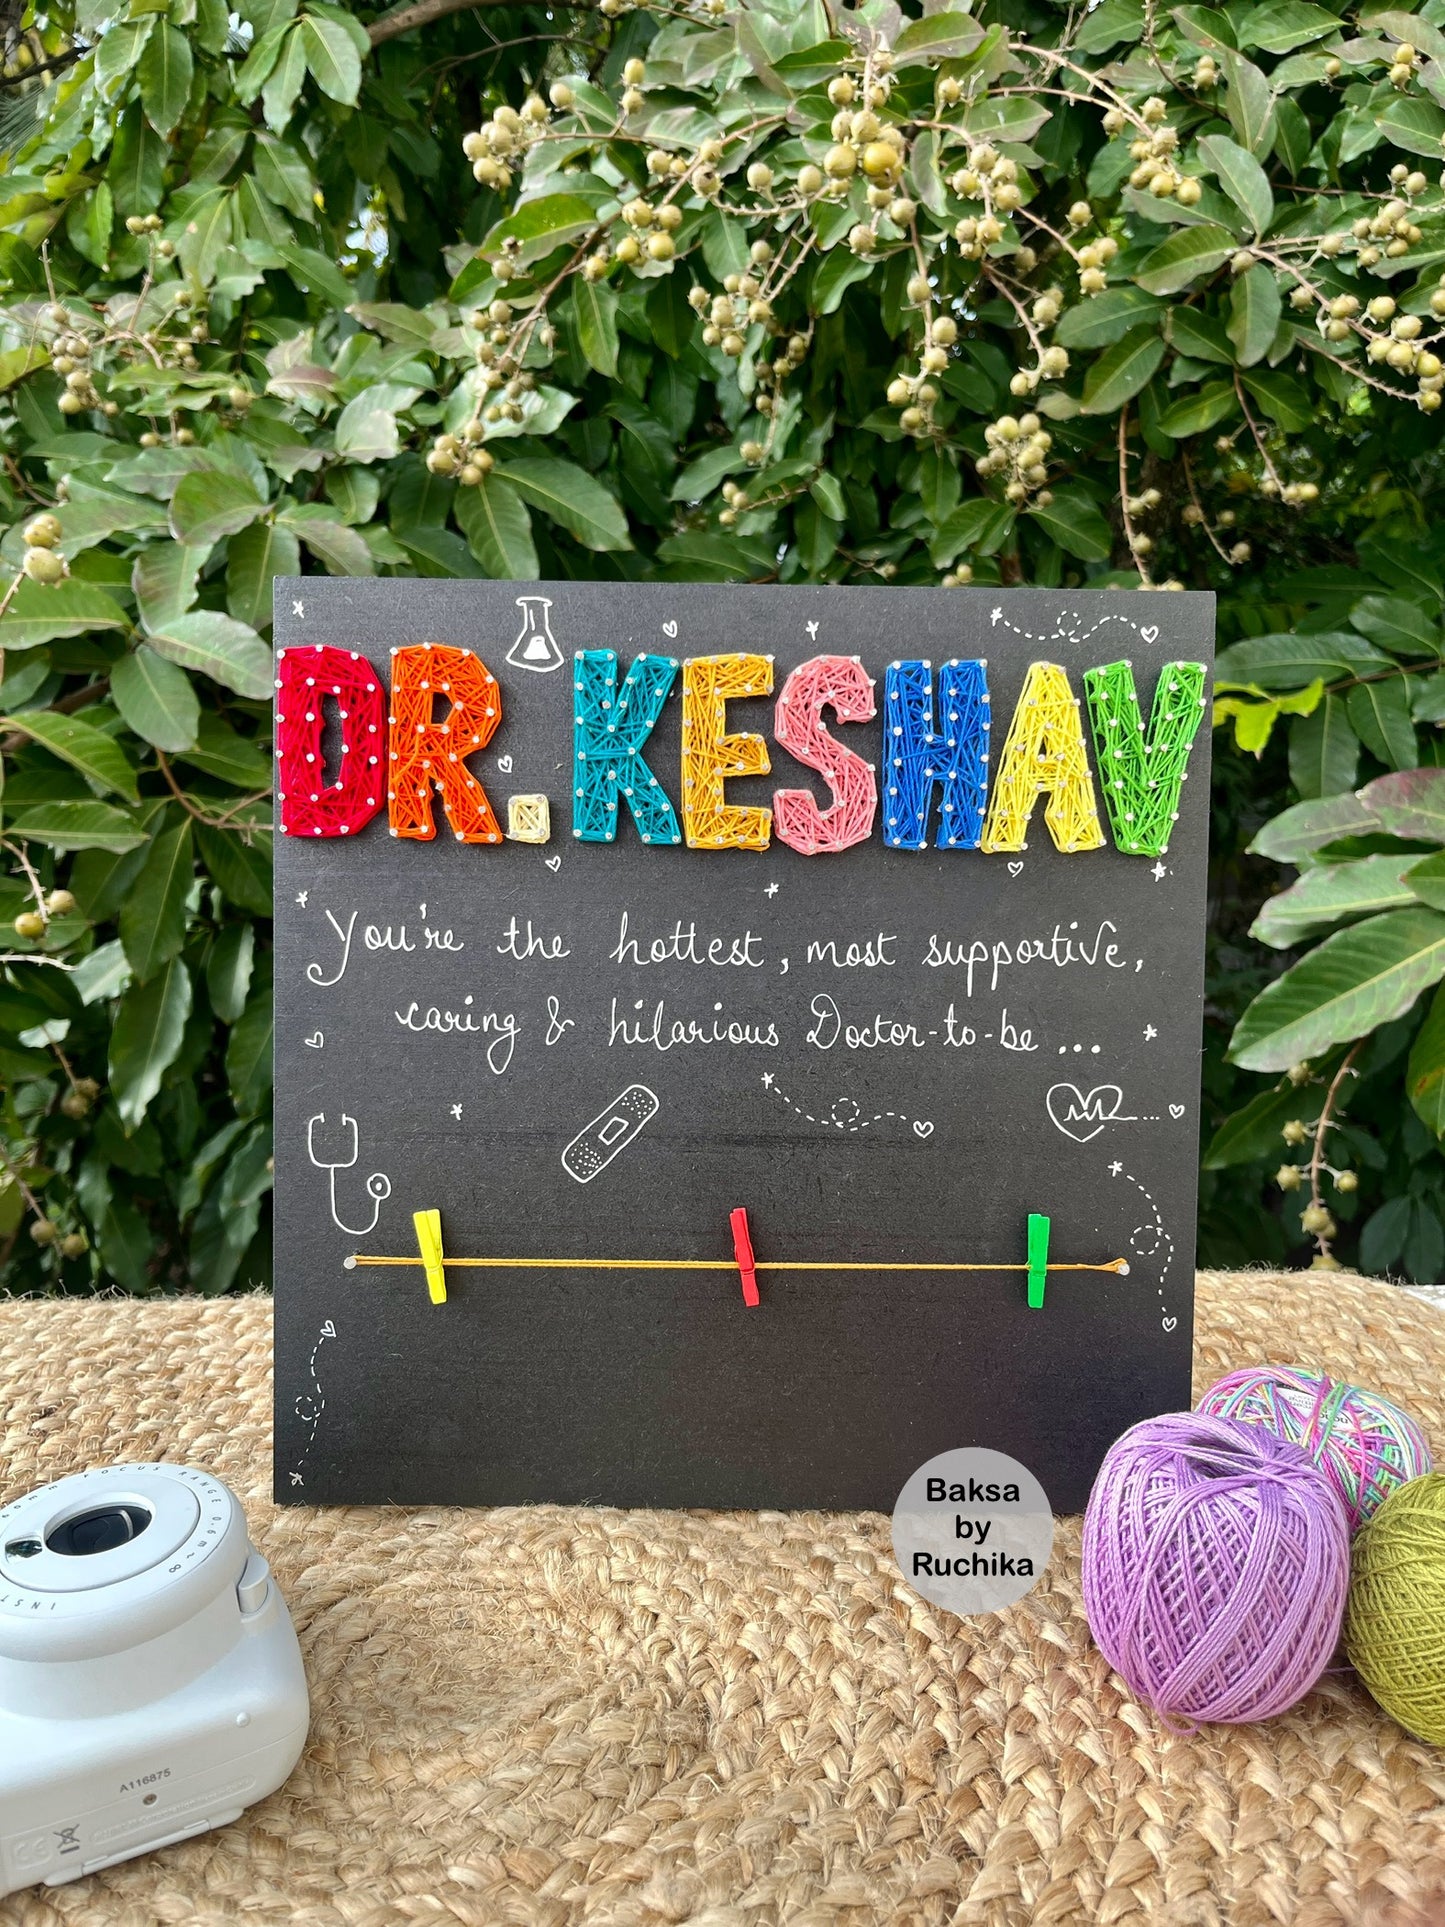 DR. KESHAV
You're the hottest, most supportive,
caring & hilarious Doctor-to-be ...
Baksa
by
Ruchika
FOCUS RANGE 0.6m~∞
INST
A116875
CE